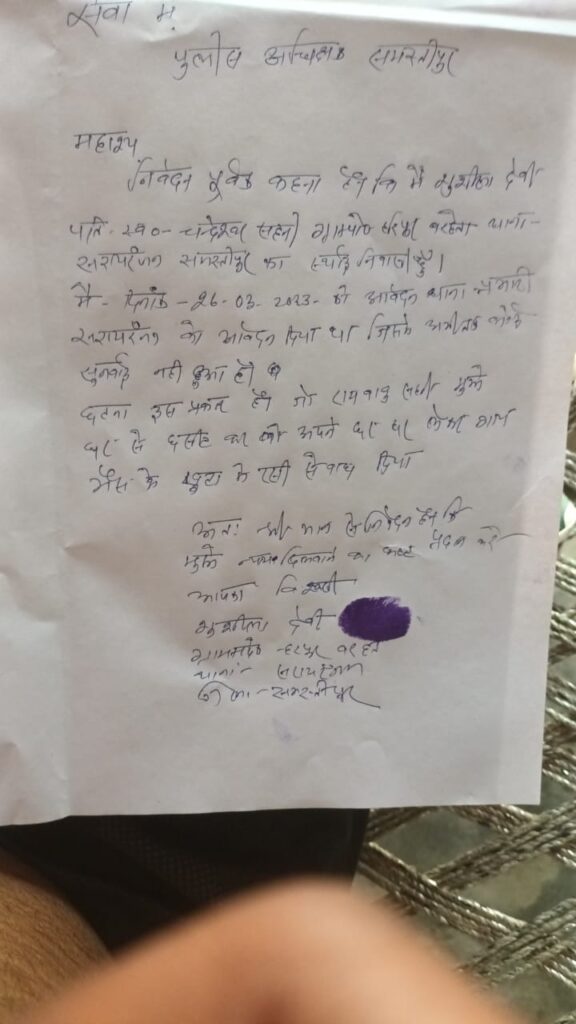 सेवा में,
पुलीस अधिक्षक समस्तीपुर
महाशय
निवेदन पूर्वक कहना है कि मै सुशीला देवी
पति-स्व०-चन्देश्वर सहनी ग्राम पो० हरपुर बरहेता थाना-
सरायरंजन समस्तीपुर का स्थाई निवासी हुँ।
मै-दिनांक-26-03-2023-को आवेदन थाना प्रभारी
सरायरंजन को आवेदन दिया था जिसके अभीतक कोई
सुनवाई नही हुआ है।
घटना इस प्रकार है। जो रामबाबु सहनी मुझे
घर से घसीट कर को अपने घर पर लेकर गाय
भैंस के खुटा के रसी से बाध दिया
अतः श्री मान से निवेदन है कि
मुझे न्याय दिलवाने का करे
आपका विश्वासी
सुशीला देवी
ग्राम पो० -हरपुर बरहेता
थाना- सरायरंजन
जिला-समस्तीपुर